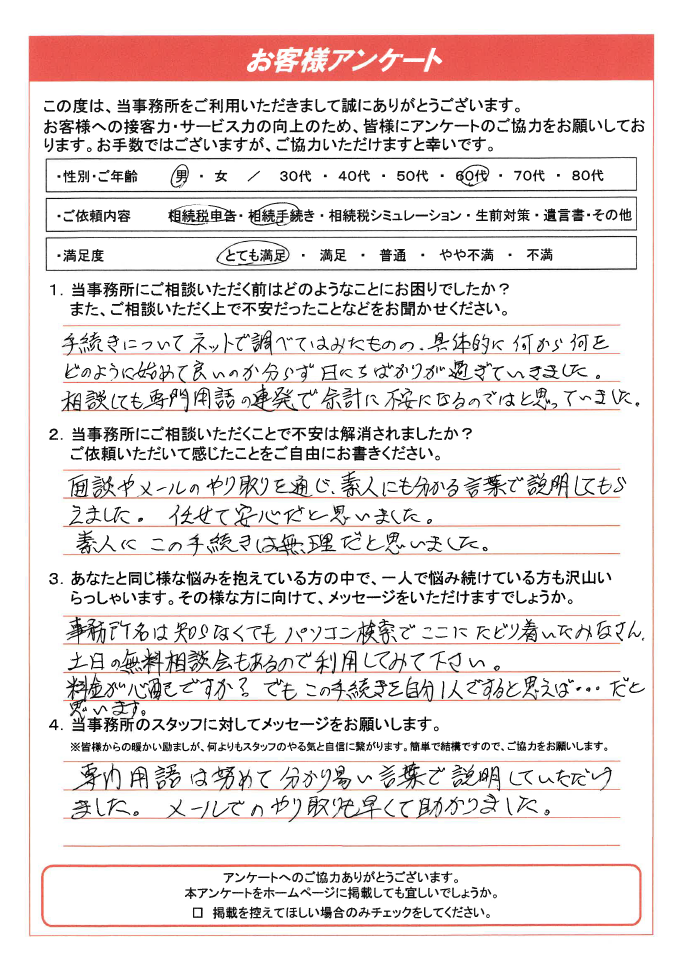 お客様アンケート
この度は、当事務所をご利用いただきまして誠にありがとうございます。
お客様への接客力・サービス力の向上のため、皆様にアンケートのご協力をお願いしてお
ります。お手数ではございますが、ご協力いただけますと幸いです。
・性別・ご年齢 男 ・ 女 ／ 30代 ・ 40代 ・ 50代 ・ 60代 ・ 70代 ・ 80代
・ご依頼内容 相続税申告・相続手続き・相続税シミュレーション・生前対策・遺言書・その他
・満足度 とても満足 ・ 満足 ・ 普通 ・ やや不満 ・ 不満
1．当事務所にご相談いただく前はどのようなことにお困りでしたか？
また、ご相談いただく上で不安だったことなどをお聞かせください。
手続きについてネットで調べてはみたものの、具体的に何から何を
どのように始めて良いのか分らず日にちばかりが過ぎていきました。
相談しても専門用語の連発で余計に不安になるのではと思っていました。
2．当事務所にご相談いただくことで不安は解消されましたか？
ご依頼いただいて感じたことをご自由にお書きください。
面談やメールのやり取りを通じ、素人にも分かる言葉で説明してもら
えました。 任せて安心だと思いました。
素人にこの手続きは無理だと思いました。
3．あなたと同じ様な悩みを抱えている方の中で、一人で悩み続けている方も沢山い
らっしゃいます。その様な方に向けて、メッセージをいただけますでしょうか。
事務所名は知らなくてもパソコン検索でここにたどり着いたみなさん、
土日の無料相談会もあるので利用してみて下さい。
料金が心配ですか？ でもこの手続きを自分1人ですると思えば・・・だと
思います。
4．当事務所のスタッフに対してメッセージをお願いします。
※皆様からの暖かい励ましが、何よりもスタッフのやる気と自信に繋がります。簡単で結構ですので、ご協力をお願いします。
専門用語は努めて分かり易い言葉で説明していただけ
ました。 メールでのやり取りも早くて助かりました。
アンケートへのご協力ありがとうございます。
本アンケートをホームページに掲載しても宜しいでしょうか。
□ 掲載を控えてほしい場合のみチェックをしてください。